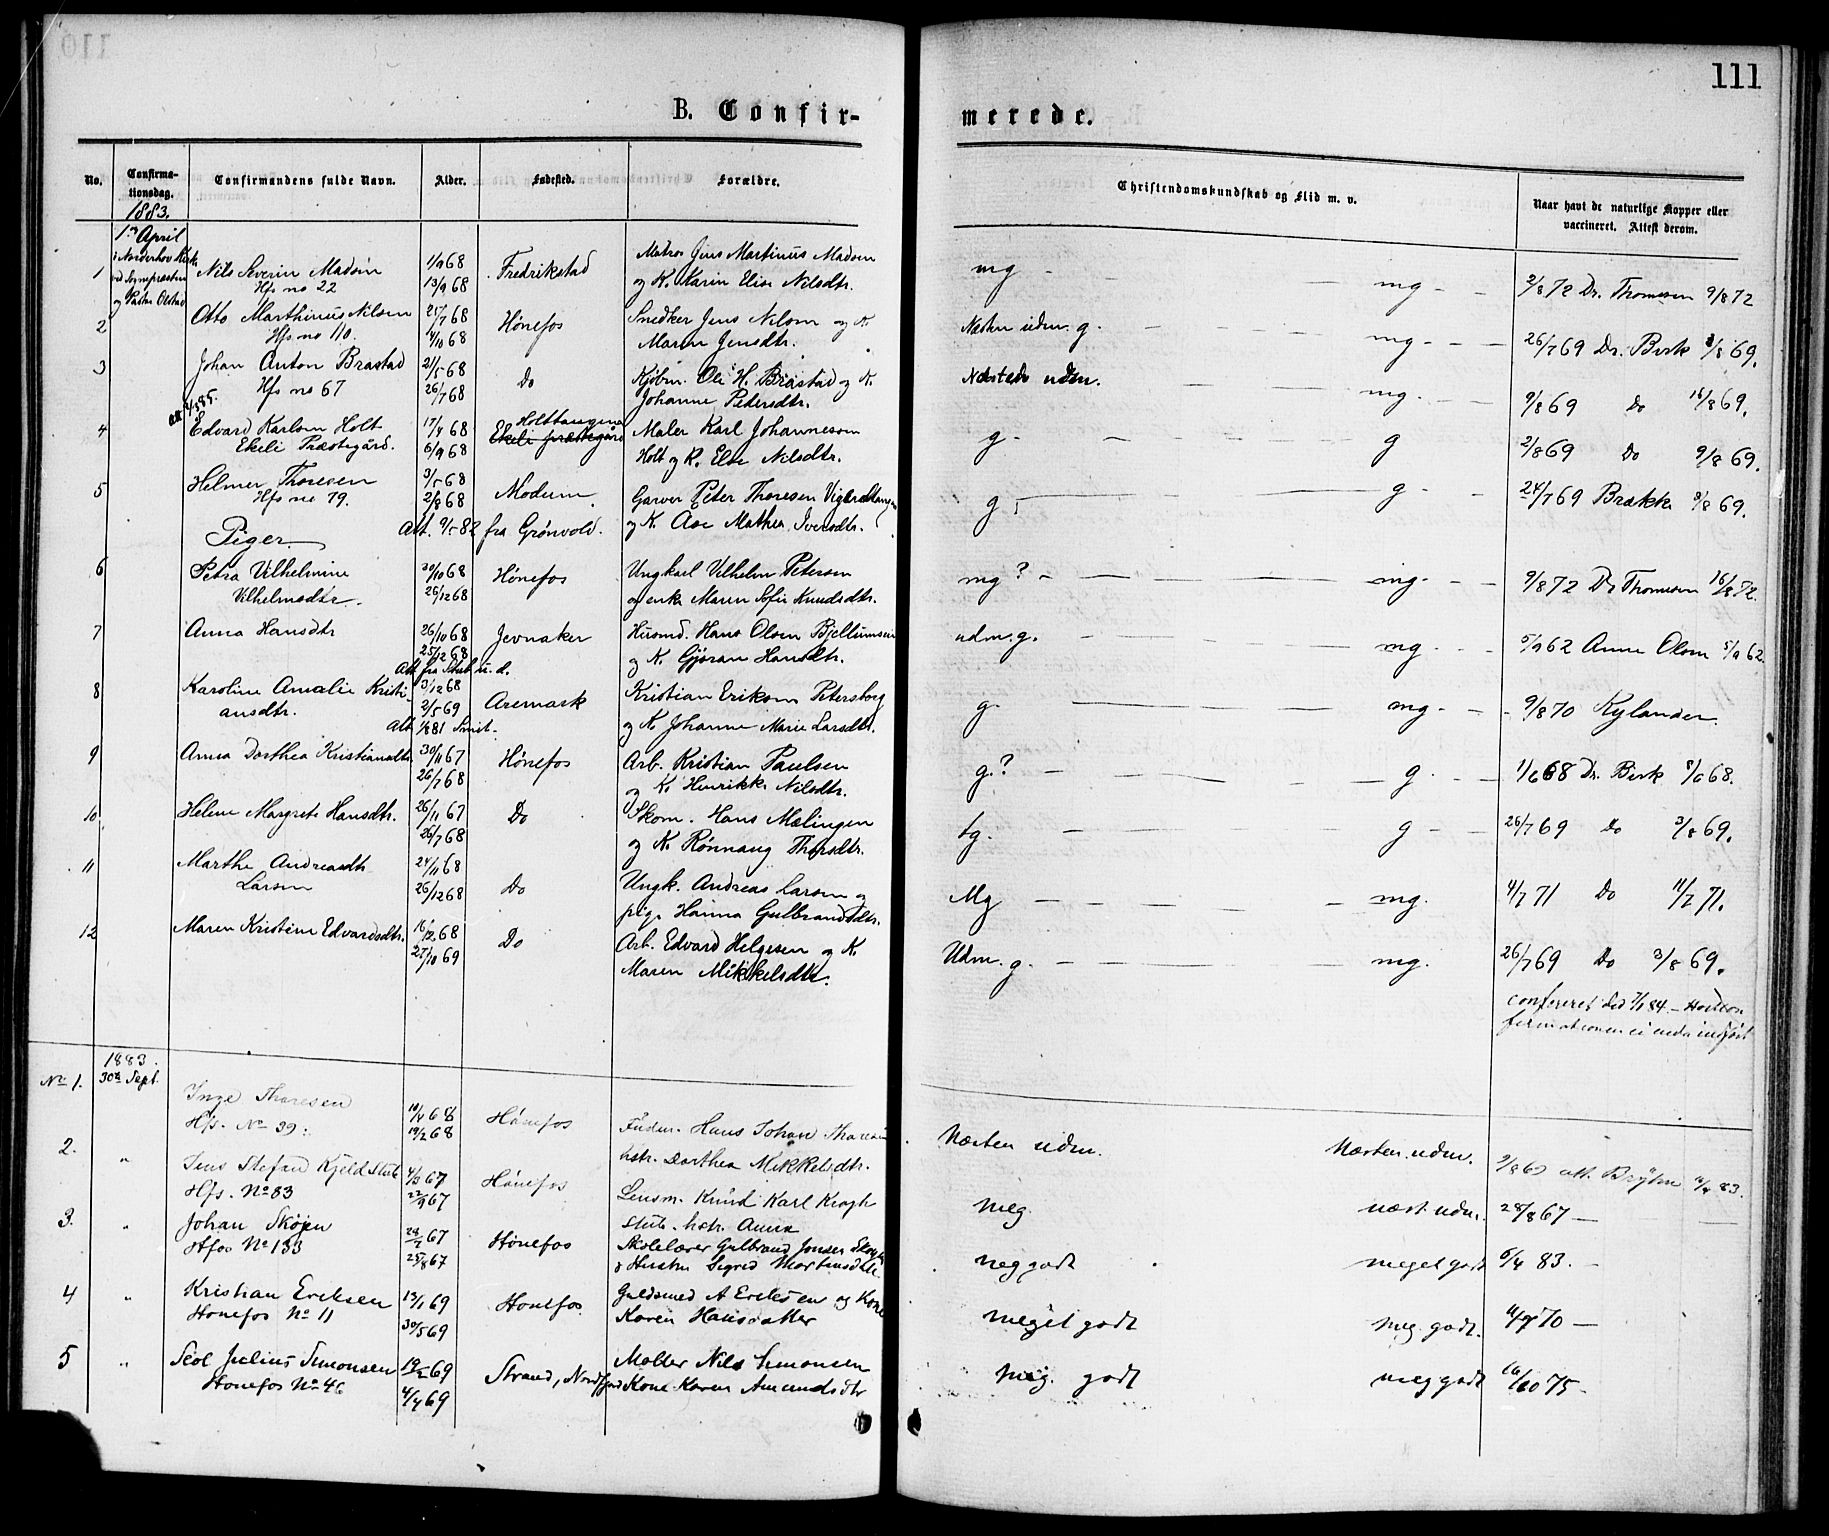 111
B. Confir-
merede.
No.
Confirma-
tionsdag.
Confirmandens fulde Navn.
Alder.
Fødested.
Forældre.
Christendomskundskab og Flid m. v.
Naar havt de naturlige Kopper eller
vaccineret. Attest derom.
1883.
1ste April
i Norderhov Kirke
ved Sognepræsten
og Pastor Olstad
1 Nils Severin Madsen 1/9 68 Fredrikstad Matros Jens Martinus Madsen mg - mg - 2/8 72 Dr. Thomesen 9/8 72
Hfs no 22 13/9 68 og K. Karin Elise Nilsdtr.
2 Otto Marthinus Nilsen 25/7 68 Hønefos Snedker Jens Nilsen og K. Næsten udm. g. mg - 26/7 69 Dr. Birk 3/8 69.
Hfs no 110. 4/10 68 Maren Jensdtr.
3 Johan Anton Brastad 21/5 68 Do Kjøbm. Ole H. Brastad og K. Næsten udm. mg. 9/8 69 Do 16/8 69.
Hfs no 67 26/7 68 Johanne Pedersdtr.
4 Edvard Karlsen Holt 17/4 68 Holthaugene Maler Karl Johannesen g - g 2/8 69 Do 9/8 69.
Ekeli Præstegård. 6/9 68 Ekeli præstegård Holt og K. Else Nilsdtr.
5 Helmer Thoresen 3/5 68 Modum Garver Peter Thoresen g - g - 24/7 69 Brakke 3/8 69.
Hfs no 79. 2/8 68 og K. Åse Mathea Iversdtr.
Att. 9/5 82 fra Grønvold.
Piger.
6 Petra Vilhelmine 30/10 68 Hønefos Ungkarl Vilhelm Petersen mg? - mg - 9/8 72 Dr Thomesen 16/8 72.
Vilhelmsdtr. 26/12 68 og enke Maren Sofie Knudsdtr.
7 Anna Hansdtr 26/10 68 Jevnaker Husmd. Hans Olsen udm. g. mg - 5/9 62 Anne Olsen 5/9 62.
25/12 68 og K. Gjøran Hansdtr.
8 Karoline Amalie Kristi- 3/12 68 Aremark Kristian Eriksen Petersborg g. mg - 9/8 70 Kylander.
ansdtr. 2/5 69 og K. Johanne Marie Larsdtr.
9 Anna Dorthea Kristiansdtr. 30/11 67 Hønefos Arb. Kristian Paulsen g.? - g. 1/6 68 Dr. Birk 8/6 68.
26/7 68 og K. Henrikke Nilsdtr.
10 Helene Margrete Hansdtr. 26/11 67 Do Skom. Hans Mælingen tg. g - 26/7 69 Do 3/8 69.
26/7 68 og K. Rønnaug Thorsdtr.
11 Marthe Andreasdtr 24/11 68 Do Ungk. Andreas Larsen og Mg - mg. 4/7 71 Do 11/7 71.
Larsen 26/12 68 pige Hanna Gulbrandsdtr.
12 Maren Kristine Edvardsdtr. 16/12 68 Do Arb. Edvard Helgesen og K. Udm. g. - mg. 26/7 69 Do 3/8 69.
25/10 69 Maren Mikkelsdtr.
confereret ded 7/1 84.
1883.
No 1. 30te Sept. Inge Thoresen 10/4 68 Hønefos Hans Johan Næsten udm. Næsten udm. 9/8 69 att.
Hfs. No 39. 19/2 68 hstr. Dorthea Mikkelsdtr.
2. " Jens Stefan Kjeld Stub 4/3 67 Hønefos Lensm. Knud Karl Krogh meg. næst. udm. 28/8 67 -
Hfs. No 83 22/9 67 Stub. hstr. Anna
3. " Johan Skøjen 28/7 67 Hønefos Skolelærer Gulbrand Jonsen meg godt meget godt 6/4 83. -
Hfos No 133 25/8 67 & Hustru Sigrid
4 " Kristian Ericksen 13/1 69 Honefos. Guldsmed A Ericksen og Kone meget godt meg. godt. 4/7 70 -
Honefos No 11 30/5 69 Karen Hansdatter
5 " Julius Simonsen 19/2 69 Strand, Møller Nils Simonsen meg. godt meg godt 16/10 75 -
Honefos No 46 4/4 69 Kone Karen Amundsdtr